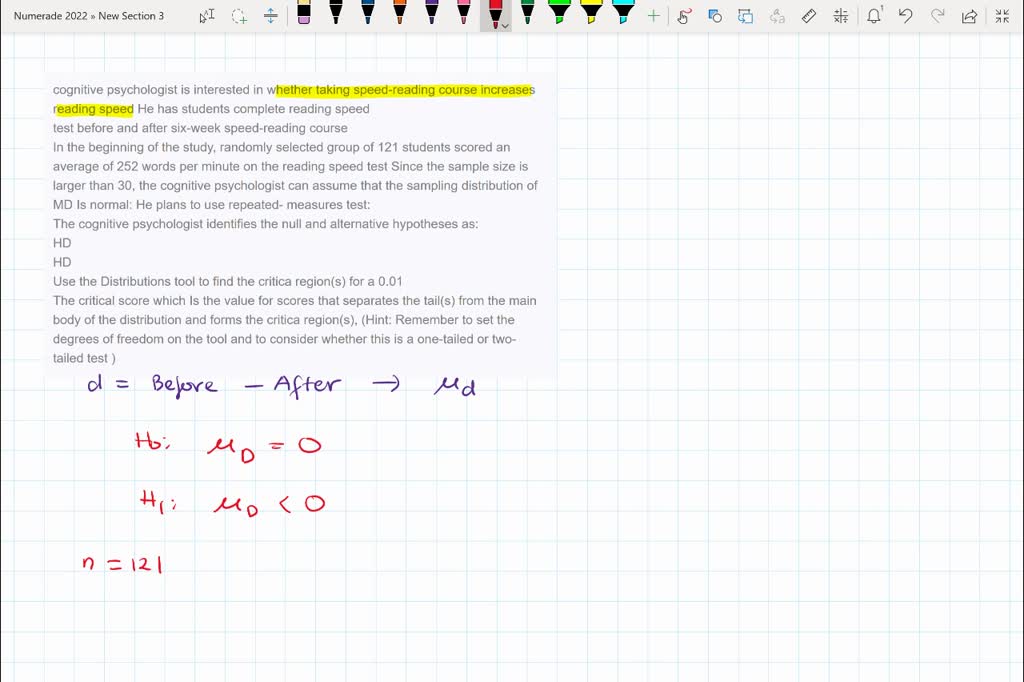 Numerade 2022 » New Section 3
cognitive psychologist is interested in whether taking speed-reading course increases
reading speed He has students complete reading speed
test before and after six-week speed-reading course
In the beginning of the study, randomly selected group of 121 students scored an
average of 252 words per minute on the reading speed test Since the sample size is
larger than 30, the cognitive psychologist can assume that the sampling distribution of
MD Is normal: He plans to use repeated- measures test:
The cognitive psychologist identifies the null and alternative hypotheses as:
HD
HD
Use the Distributions tool to find the critica region(s) for a 0.01
The critical score which Is the value for scores that separates the tail(s) from the main
body of the distribution and forms the critica region(s), (Hint: Remember to set the
degrees of freedom on the tool and to consider whether this is a one-tailed or two-
tailed test )
d = Before - After → μd
H0: μD = 0
H1: μD < 0
n = 121